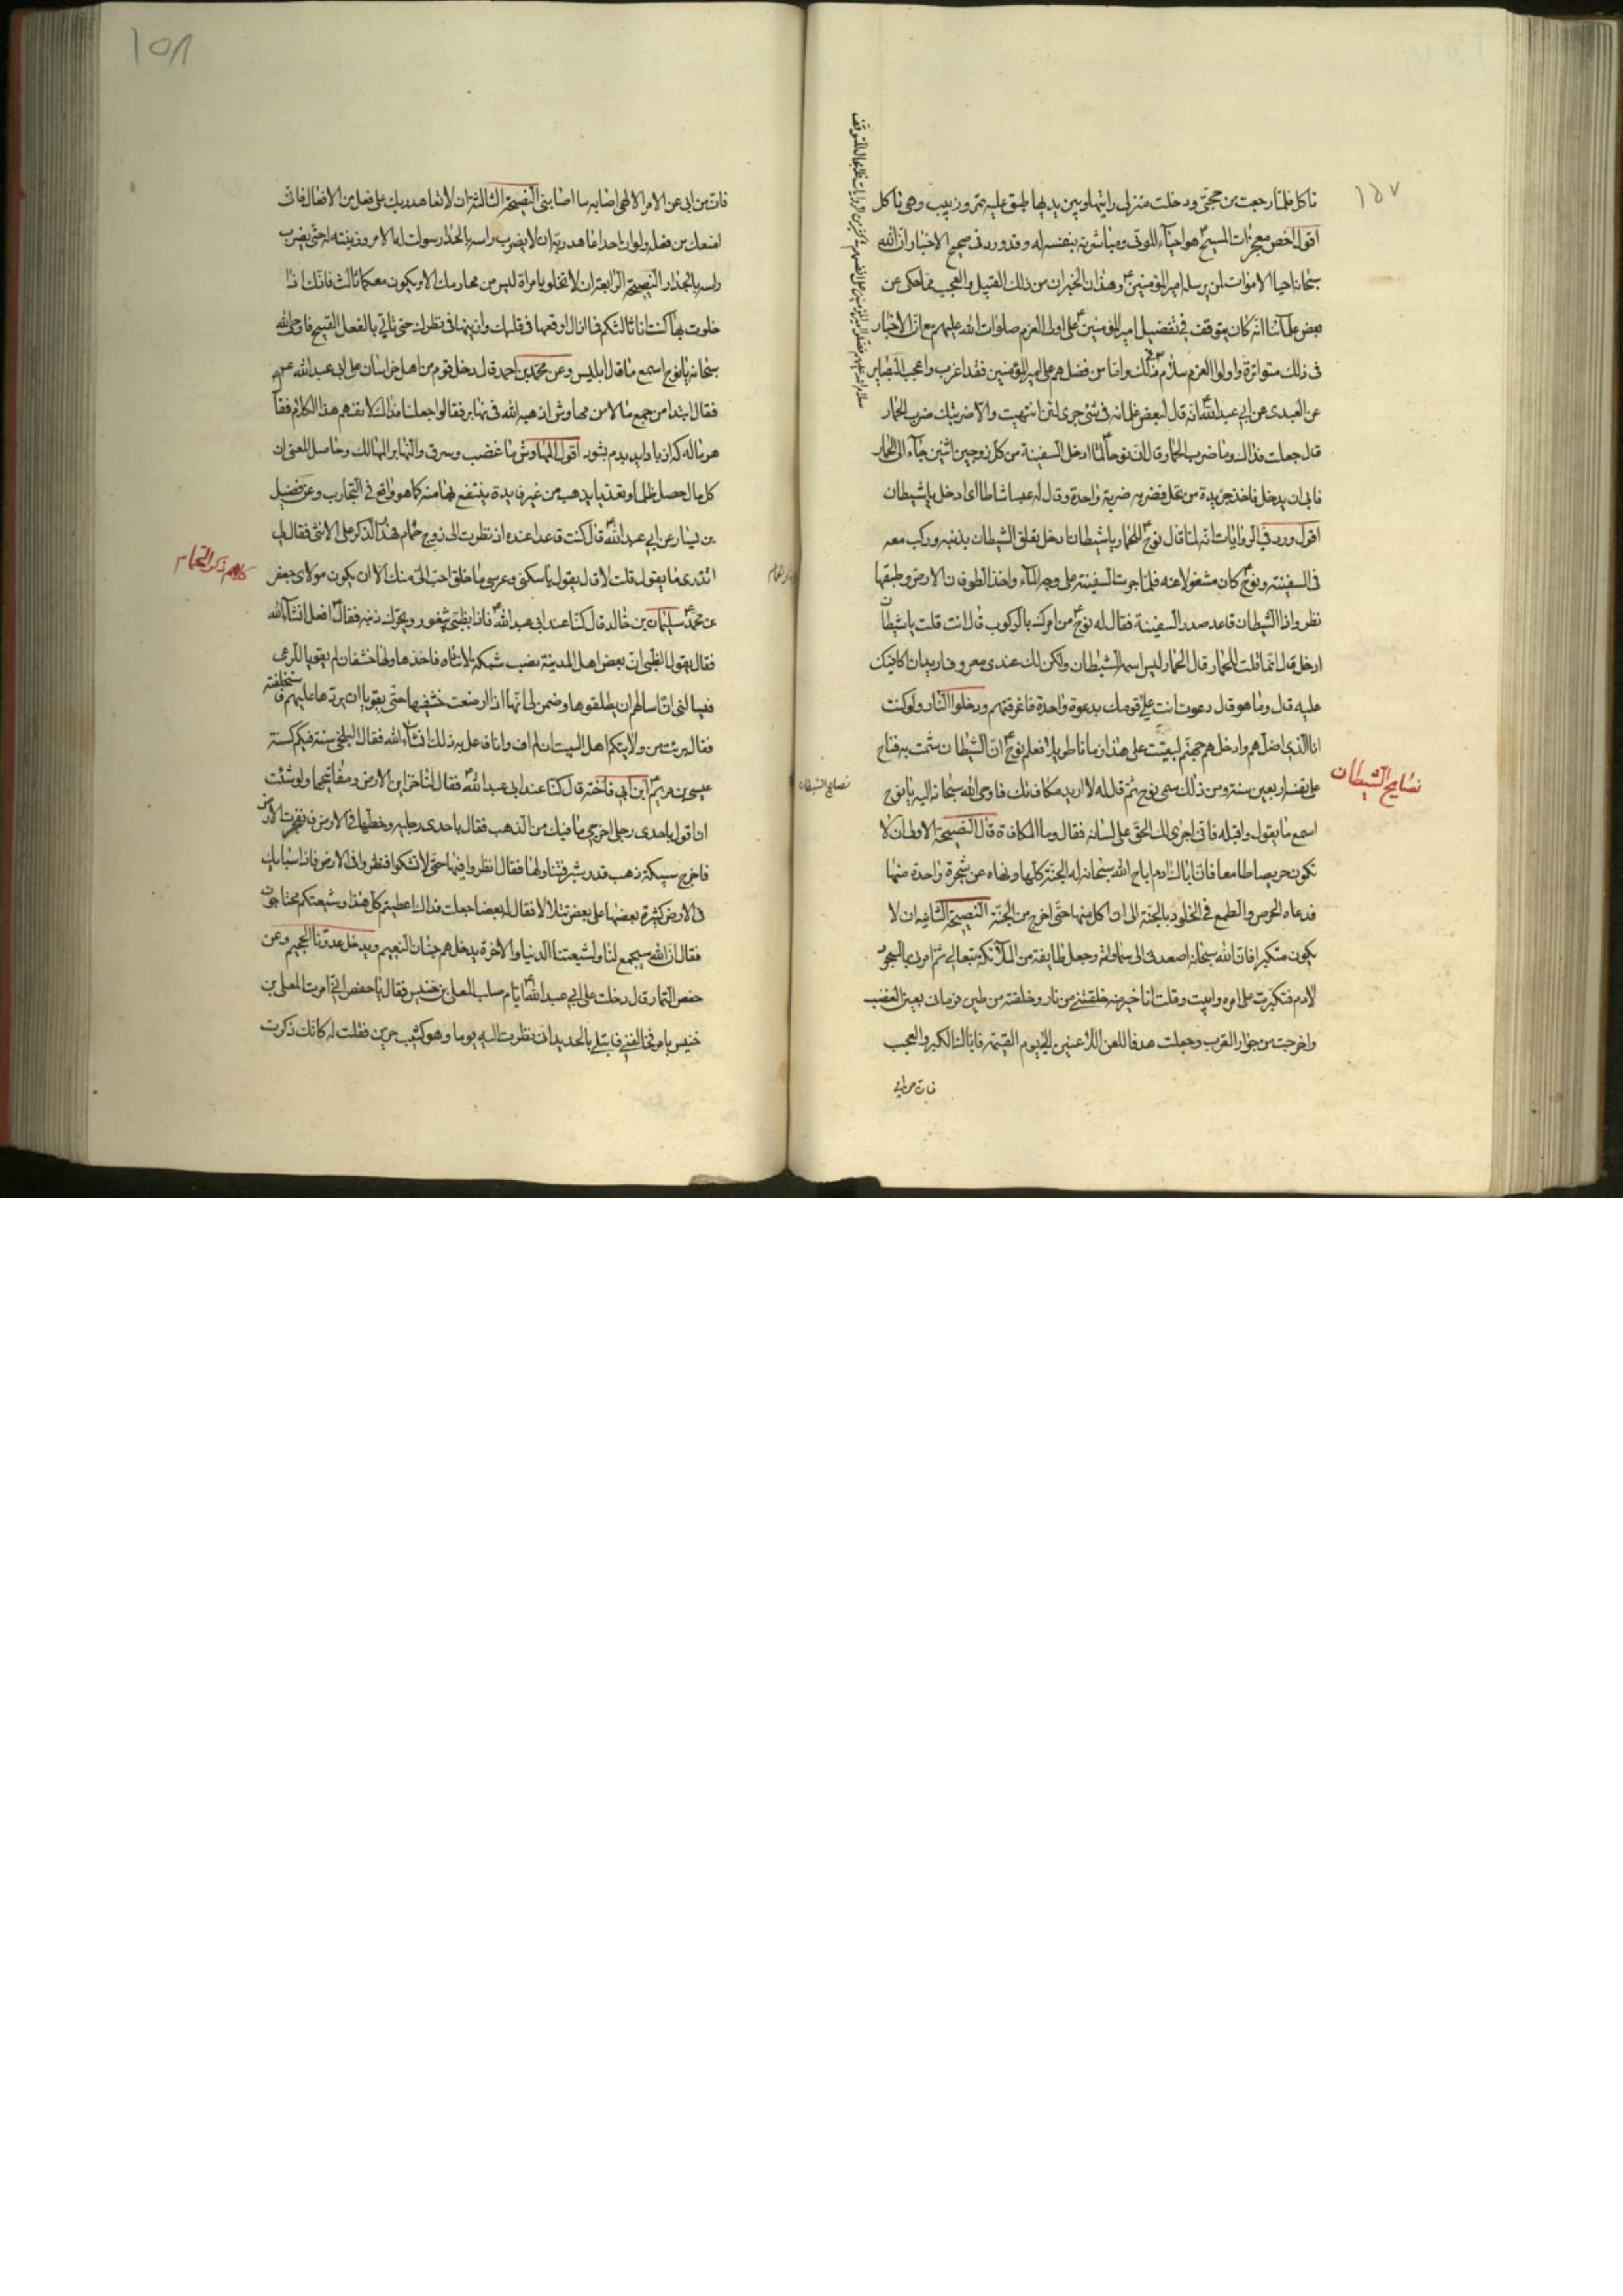 ١٥٧
تاكل فلما رجعت من حجتى ودخلت منزلى رايتها وبين يديها طبق عليه تمر وزبيب وهى تاكل
اقول اخص معجزات المسيح ع هو احياء الموتى ومباشرته بنفسه له وقد ورد فى صحيح الاخبار ان الله
سبحانه احيا الاموات لمن يرسله امير المؤمنين ع وهذان الخبران من ذلك القبيل والعجب مما حكى عن
بعض علمائنا انه كان يتوقف فى تفضيل امير المؤمنين ع على اولى العزم صلوات الله عليهم مع ان الاخبار
فى ذلك متواترة واولوا العزم سلام فى ذلك واناس فضلهم على امير المؤمنين فقد اغرب واعجب البصاير
عن العبدى عن ابي عبد الله ع انه قال لبعض غلمانه فى شئ جرى لئن انتهيت والا ضربتك ضرب الحمار
قال جعلت فداك وما ضرب الحمار قال ان نوحا ع لما ادخل السفينة من كل زوجين اثنين جاء الى الحمار
فابى ان يدخل فاخذ جريدة من نخل فضربه ضربة واحدة وقال له عبسا شاطانا اى ادخل يا شيطان
اقول ورد فى الروايات انه لما قال نوح ع للحمار يا شيطان ادخل تعلق الشيطان بذنبه وركب معه
فى السفينة ونوح ع كان مشغولا عنه فلما جرت السفينة على وجه الماء واخذ الطوفان الارض وطبقها
نظر واذا الشيطان قاعد صدر السفينة فقال له نوح ع من امرك بالركوب قال انت قلت يا شيطان
ادخل قال انما قلت للحمار قال الحمار ليس اسمه الشيطان ولكن لك عندى معروف اريد ان اكافيك
عليه قال وما هو قال دعوت انت على قومك بدعوة واحدة فاغرقتهم ودخلوا النار ولو كنت
انا الذى اضلهم وادخلهم جهنم لبقيت على هذا زمانا طويلا فعلم نوح ع ان الشيطان شمت به فناح
على نفسه اربعين سنة ومن ذلك سمى نوح ثم قال له لا اريد مكافاتك فاوحى الله سبحانه اليه يا نوح
نصايح الشيطان
اسمع ما يقول واقبله فانى اجرى لك الحق على لسانه فقال وما المكافاة قال النصيحة الاولى ان لا
تكون حريصا طامعا فان اباك ادم اباح الله سبحانه له الجنة كلها ونهاه عن شجرة واحدة منها
فدعاه الحرص والطمع فى الخلود بالجنة الى ان اكل منها حتى اخرج من الجنة النصيحة الثانيه ان لا
يكون متكبرا فان الله سبحانه اصعدنى الى سماواته وجعل طايفة من الملائكة تبعا لى ثم امرنى بالسجود
لادم فتكبرت على امره وابيت وقلت انا خير منه خلقتنى من نار وخلقته من طين فرمانى بعين الغضب
واخرجت من جوار القرب وجعلت هدفا للعن اللاعنين الى يوم القيمة فاياك الكبر والعجب
فان من ابى
نصايح الشيطان
١٥٨
فان من ابى عن الامر الالهى اصابه ما اصابنى النصيحة الثالثة ان لا تعاهد ربك على فعل من الافعال فانى
امنعك من فعله ولو ان احدا عاهد ربه ان لا يضرب راسه بالجدار سولت له الامر وزينته له حتى يضرب
راسه بالجدار النصيحة الرابعة ان لا تخلو بامراة ليس من محارمك الا ويكون معكما ثالث فانك اذا
خلوت بها كنت انا ثالثكم فما ازال اوقعها فى قلبك وازينها فى نظرك حتى تاتى بالفعل القبيح فاوحى الله
سبحانه يا نوح اسمع ما قال ابليس وعن محمد بن احمد قال دخل قوم من اهل خراسان على ابى عبد الله ع
فقال ابتداء من جمع مالا من مهاوش اذهبه الله فى نهابر فقالوا جعلنا فداك لا نفهم هذا الكلام فقا
هر مال كه از باد ايد بدم بشود اقول المهاوش ما غضب وسرق والنهابر المهالك وحاصل المعنى ان
كل مال حصل ظلما وتعديا يذهب من غير فايدة ينتفع بها منه كما هو واقع فى التجارب وعن فضيل
بن يسار عن ابي عبد الله ع قال كنت قاعدا عنده اذ نظرت الى زوج حمام فهدل الذكر على الانثى فقال لى
كلام ذكر الحمام
اتدرى ما يقول قلت لا قال يقول يا سكنى وعرسى ما خلق احب الى منك الا ان يكون مولاى جعفر
بن محمد ع سليمان بن خالد قال كنا عند ابى عبد الله ع فاذا بظبى يثغو ويحرك ذنبه فقال ع افعل انشاء الله
فقال يقول الظبى ان بعض اهل المدينة نصب شبكة لانثاه فاخذها ولها خشفان لم يقويا للرعى
فيسالنى ان اسالهم ان يطلقوها وضمن لى انها اذا ارضعت خشفيها حتى يقويا ان يردها عليهم فاستحلفته
فقال برئت من ولايتكم اهل البيت ان لم اف وانا فاعل به ذلك انشاء الله فقال البلخى سنة فيكم كسنة
عيسى بن مريم ع ابن ابى فاخته قال كنا عند ابى عبد الله ع فقال لنا خزاين الارض ومفاتيحها ولو شئت
ان اقول باحدى رجلى اخرجى ما فيك من الذهب فقال باحدى رجليه وخطها فى الارض فانفجرت الارض
فاخرج سبيكة ذهب قدر شبر فتناولها فقال انظروا فيها حتى لا تشكوا فنظروا فى الارض فاذا سبايك
فى الارض كثيرة بعضها على بعض تتلالا فقال له بعضنا جعلت فداك اعطيتم كل هذا وشيعتكم محتاجون
فقال ان الله سيجمع لنا ولشيعتنا الدنيا والاخرة يدخلهم جنان النعيم ويدخل عدونا الجحيم وعن
حفص التمار قال دخلت على ابى عبد الله ع ايام صلب المعلى بن خنيس فقال يا حفص انى امرت المعلى بن
خنيس بامر فخالفنى فابتلى بالحديد انى نظرت اليه يوما وهو كئيب حزين فقلت له كانك ذكرت